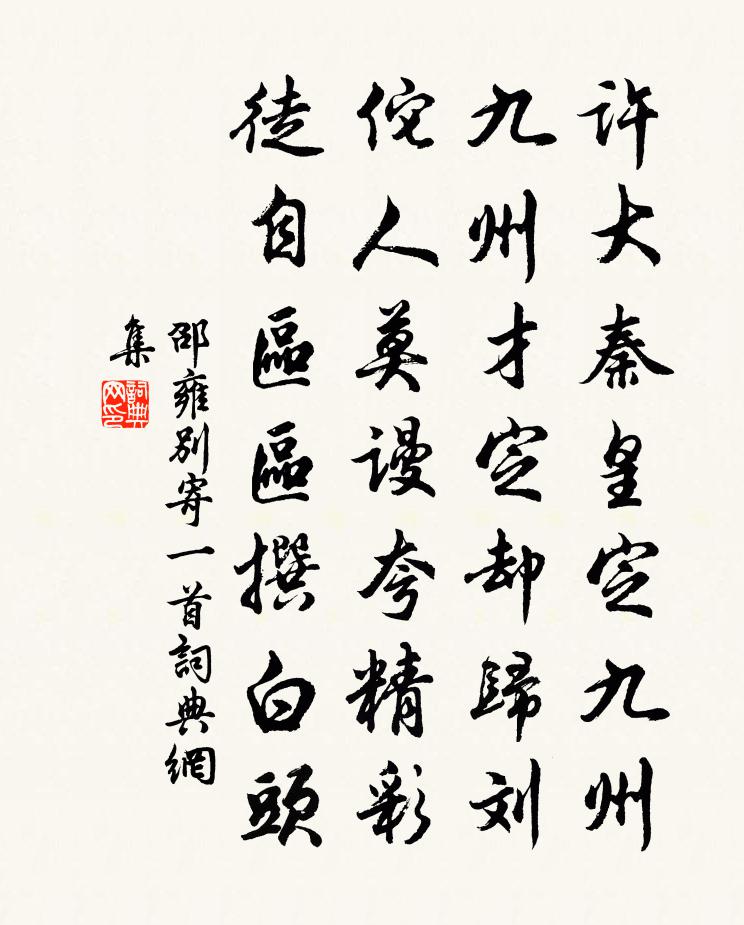 许大秦皇定九州
九州才定却歸刘
佗人莫谩夸精彩
徒自區區撰白頭
邵雍别寄一首詞典網
集
詞典
网印